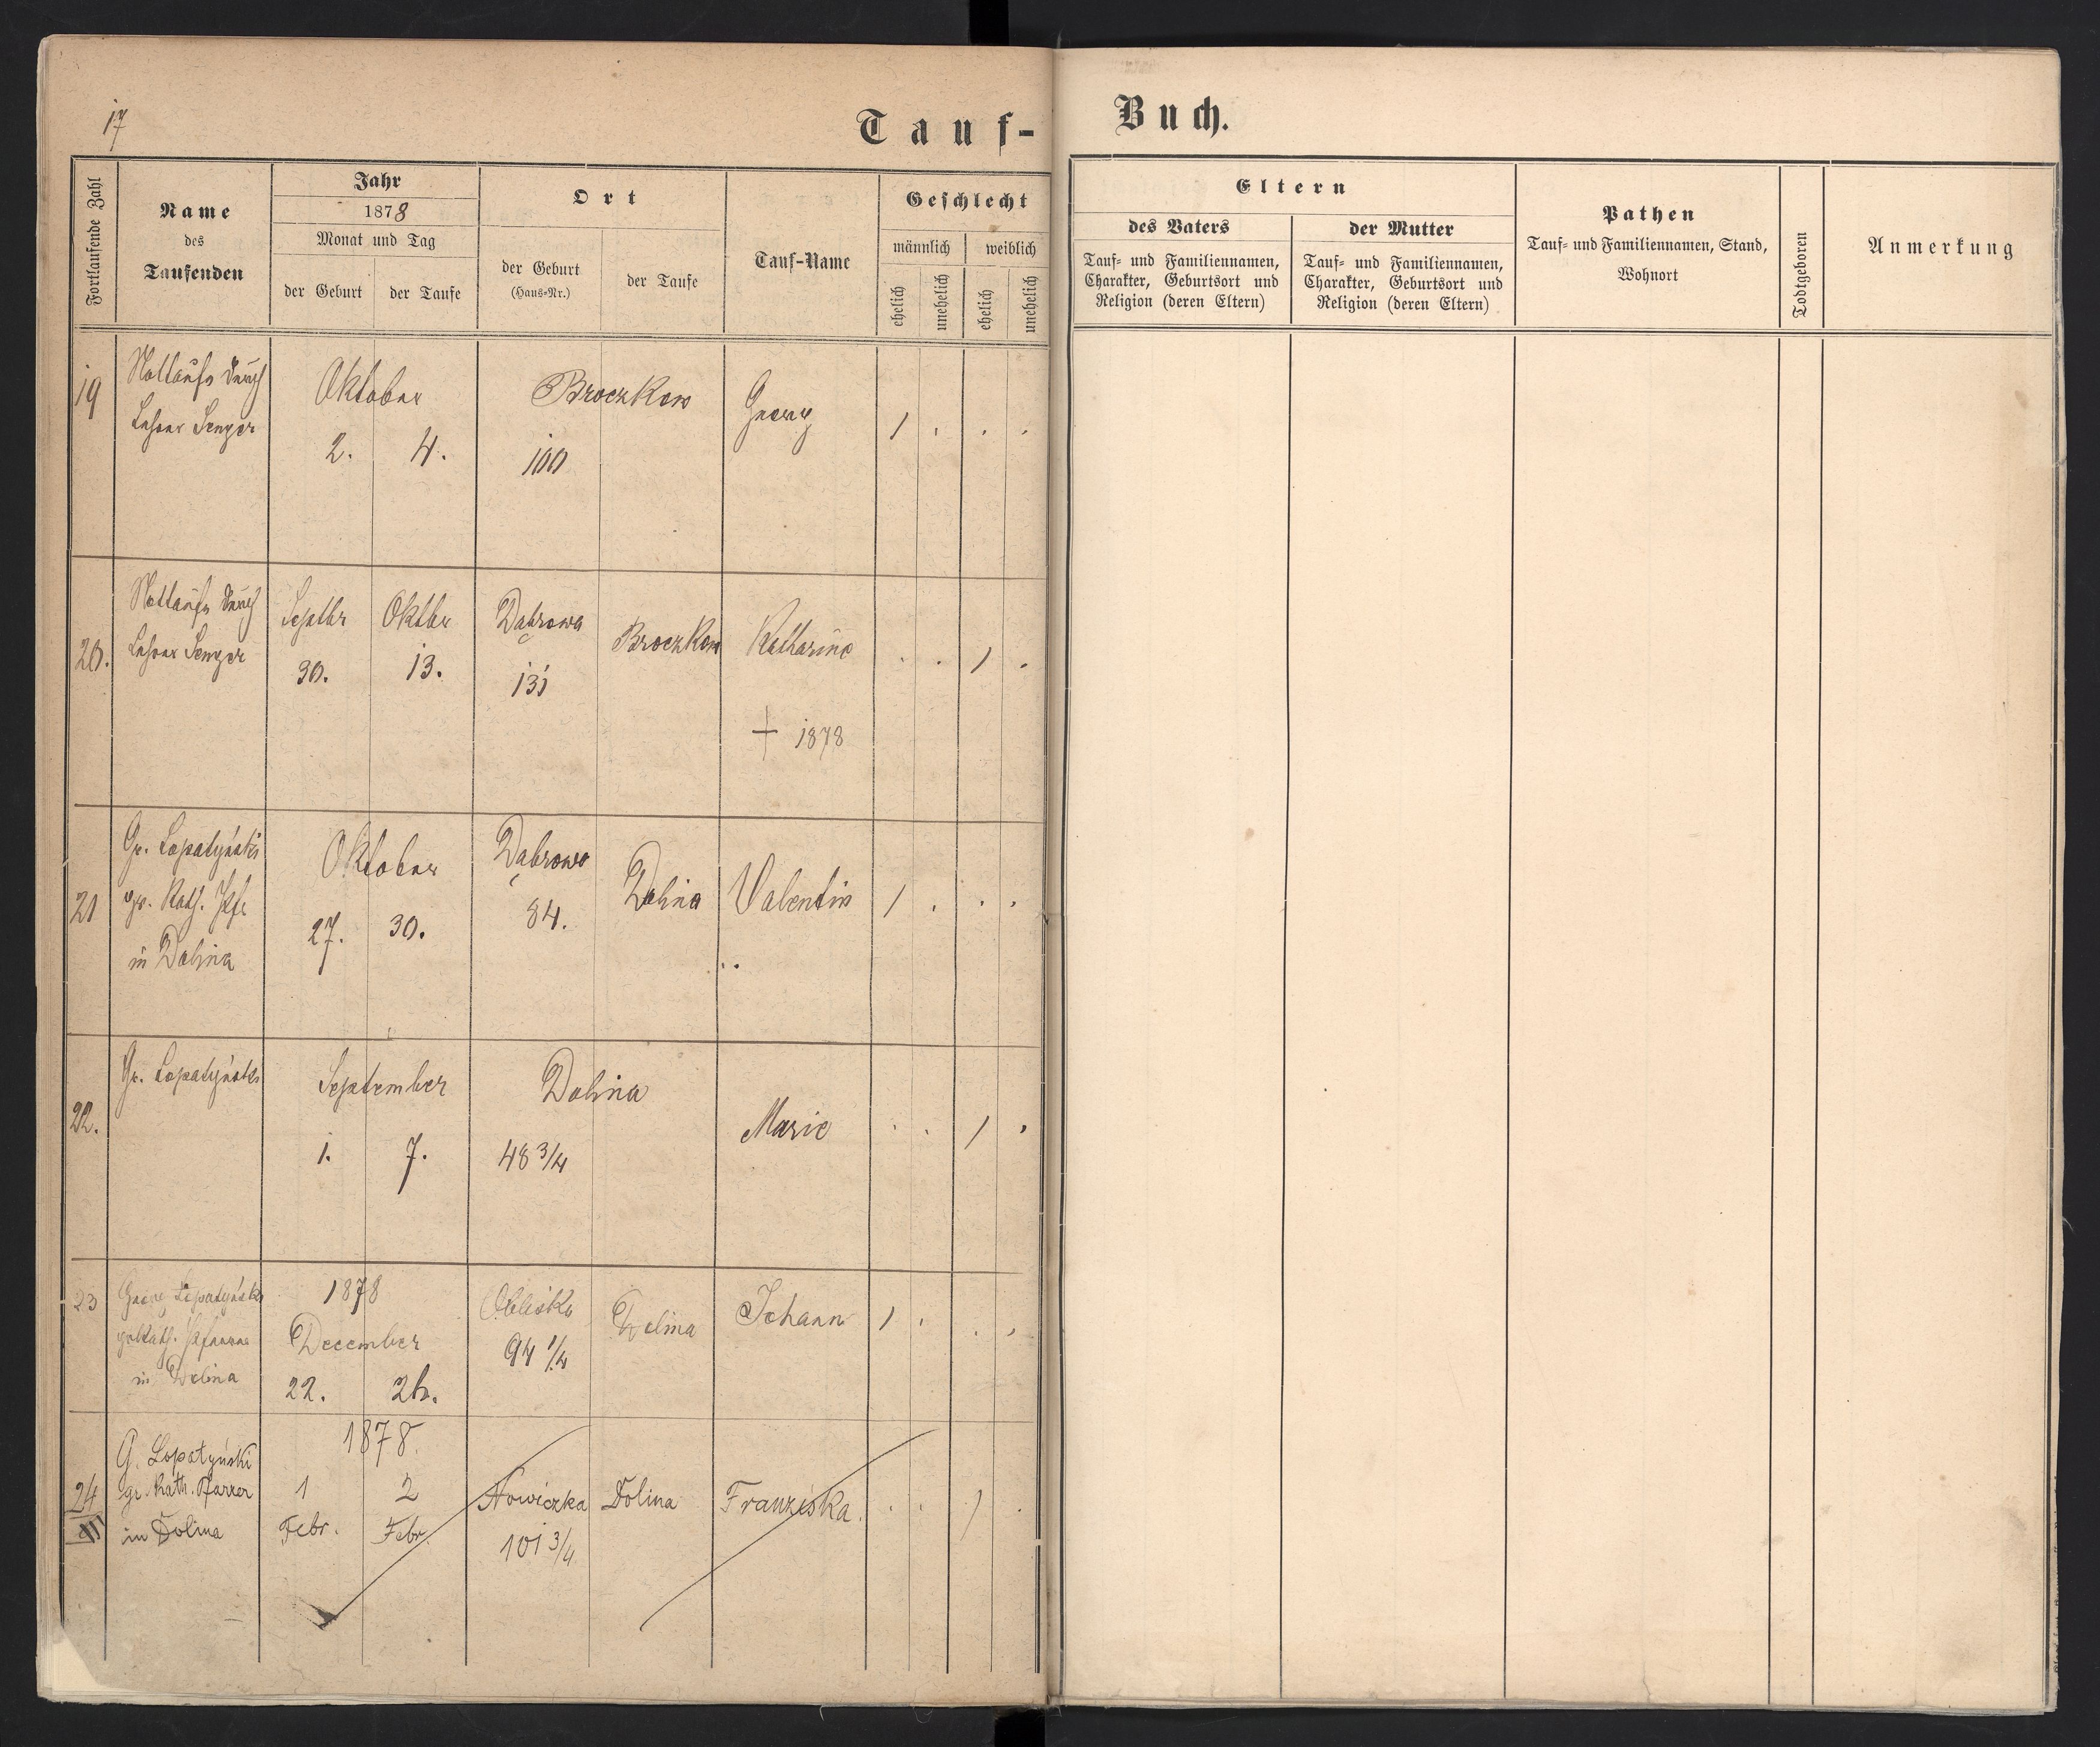 17
Tauf-
Buch.
Fortlaufende Zahl
Name
des
Taufenden
Jahr
1878
Monat und Tag
der Geburt
der Taufe
Ort
der Geburt
(Haus-Nr.)
der Taufe
Tauf-Name
Geschlecht
männlich
weiblich
ehelich
unehelich
ehelich
unehelich
Eltern
des Vaters
Tauf- und Familiennamen,
Charakter, Geburtsort und
Religion (deren Eltern)
der Mutter
Tauf- und Familiennamen,
Charakter, Geburtsort und
Religion (deren Eltern)
Pathen
Tauf- und Familiennamen, Stand,
Wohnort
Todtgeboren
Anmerkung
19
Nottaufe durch
Lehrer Senger
Oktober
2. 4.
Broczkow
100
Georg
1 . . .
20.
Nottaufe durch
Lehrer Senger
Septbr
30.
Oktbr
13.
Dąbrowa
131
Broczkow
Katharine
. . 1 .
+ 1878
21
Gr. Lopatyński
gr. Kath. Pfr
in Dolina
Oktober
27. 30.
Dąbrowa
84.
Dolina
Valentin
1 . . .
22.
Gr. Lopatyński
September
1. 7.
Dolina
48 3/4
Marie
. . 1 .
23
Georg Lopatyński
grkath. Pfarrer
in Dolina
1878
December
22. 26.
Obliska
94 1/4
Dolina
Johann
1 . . .
24
G. Lopatyński
gr. Kath. Pfarrer
in Dolina
1878.
1 2
Febr. Febr.
Nowiczka
101 3/4
Dolina
Franziska.
. . 1 .